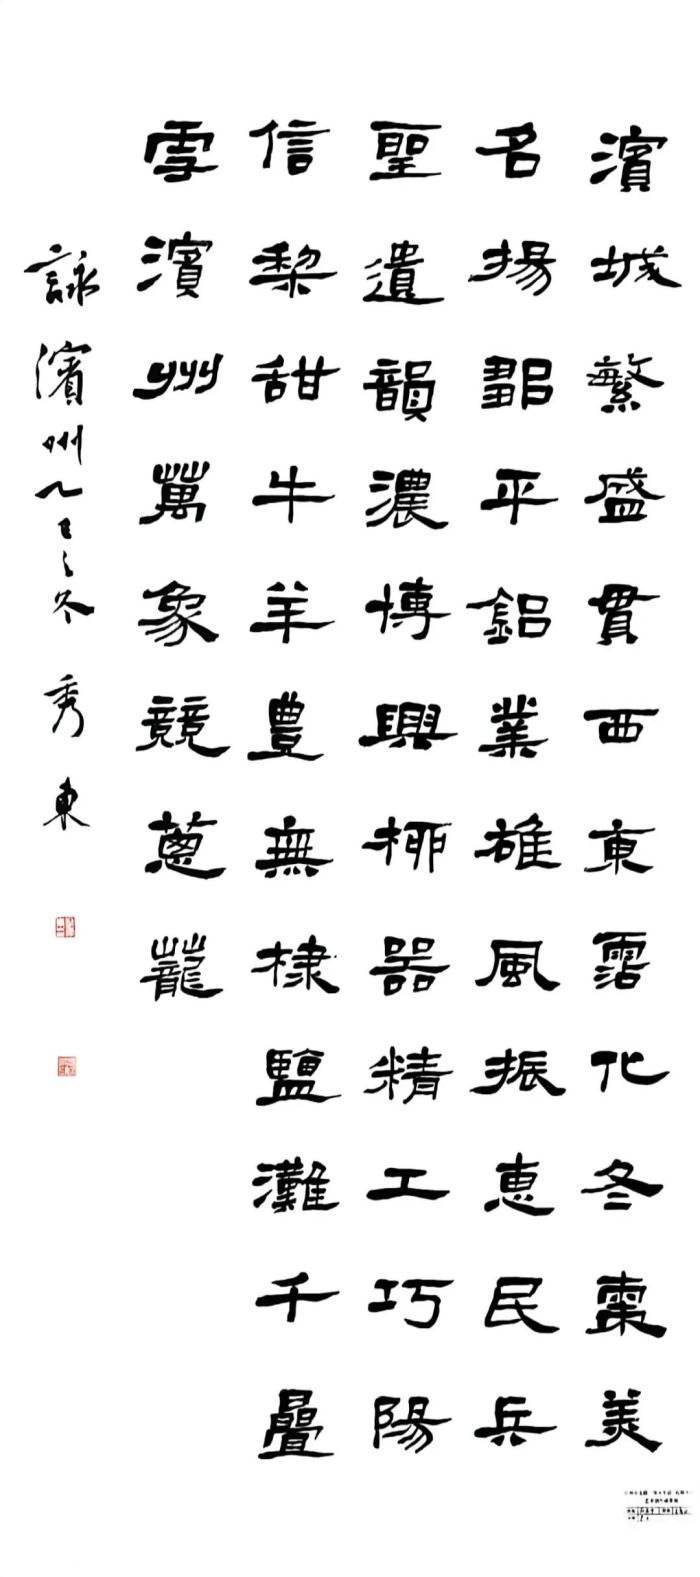 濱城繁盛貫西東霑化冬棗美
名揚鄒平鋁業雄風振惠民兵
聖遺韻濃博興柳器精工巧陽
信梨甜牛羊豐無棣鹽灘千疊
雪濱州萬象競蔥蘢
詠濱州乙巳之冬 秀東